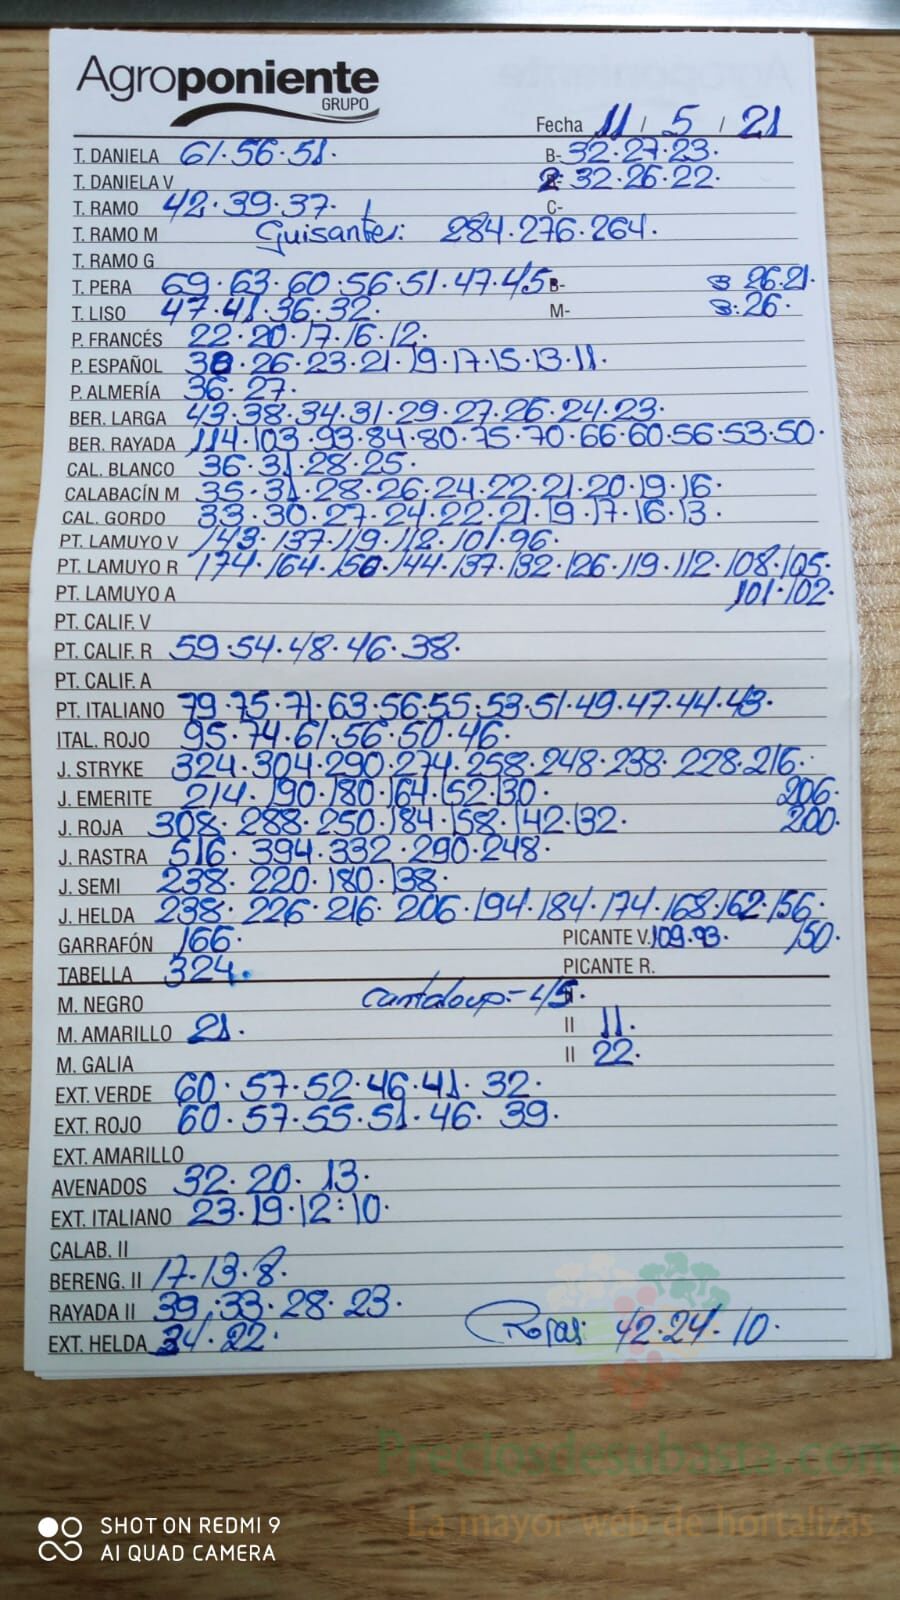 Agroponiente
GRUPO
Fecha 11 / 5 / 21
T. DANIELA 61.56.51. B- 32.27.23.
T. DANIELA V 2 32.26.22.
T. RAMO 42.39.37. C-
T. RAMO M Guisantes: 284.276.264.
T. RAMO G
T. PERA 69.63.60.56.51.47.45 B- B 26.21.
T. LISO 47.41.36.32. M- B:26.
P. FRANCÉS 22.20.17.16.12.
P. ESPAÑOL 30.26.23.21.19.17.15.13.11.
P. ALMERÍA 36.27.
BER. LARGA 43.38.34.31.29.27.26.24.23.
BER. RAYADA 114.103.93.84.80.75.70.66.60.56.53.50.
CAL. BLANCO 36.31.28.25.
CALABACÍN M 35.31.28.26.24.22.21.20.19.16.
CAL. GORDO 33.30.27.24.22.21.19.17.16.13.
PT. LAMUYO V 143.137.119.112.101.96.
PT. LAMUYO R 174.164.150.144.137.132.126.119.112.108.105.
PT. LAMUYO A 101.102.
PT. CALIF. V
PT. CALIF. R 59.54.48.46.38.
PT. CALIF. A
PT. ITALIANO 79.75.71.63.56.55.53.51.49.47.44.43.
ITAL. ROJO 95.74.61.56.50.46.
J. STRYKE 324.304.290.274.258.248.238.228.216.
J. EMERITE 214.190.180.164.152.130. 206.
J. ROJA 308.288.250.184.158.142.132. 200.
J. RASTRA 516.394.332.290.248.
J. SEMI 238.220.180.138.
J. HELDA 238.226.216.206.194.184.174.168.162.156.
GARRAFÓN 166. PICANTE V. 109.93. 150.
TABELLA 324. PICANTE R.
M. NEGRO Cantaloup.- 45.
M. AMARILLO 21. II 11.
M. GALIA II 22.
EXT. VERDE 60.57.52.46.41.32.
EXT. ROJO 60.57.55.51.46.39.
EXT. AMARILLO
AVENADOS 32.20.13.
EXT. ITALIANO 23.19.12:10.
CALAB. II
BERENG. II 17.13.8.
RAYADA II 39.33.28.23.
EXT. HELDA 34.22. Rojas: 42.24.10.
Preciosdesubasta.com
La mayor web de hortalizas
SHOT ON REDMI 9
AI QUAD CAMERA